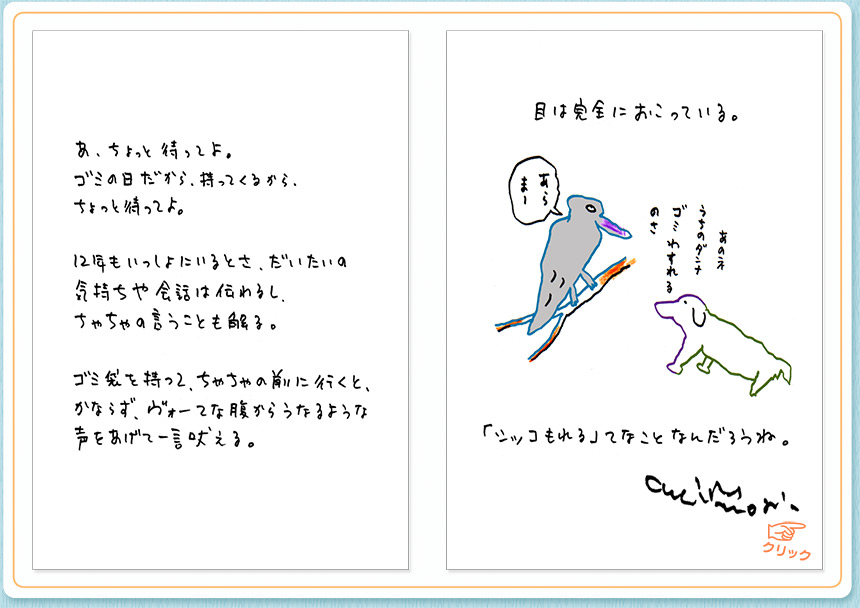 あ、ちょっと待ってよ。
ゴミの日だから、持ってくるから、
ちょっと待ってよ。
12年もいっしょにいるとさ、だいたいの
気持ちや会話は伝わるし、
ちゃちゃの言うことも解る。
ゴミ袋を持って、ちゃちゃの前に行くと、
かならず、ヴォーてな腹からうなるような
声をあげて一言吠える。
目は完全におこっている。
あら
まー
あのネ
うちのダンナ
ゴミわすれる
のさ
「シッコもれる」てなことなんだろうね。
クリック